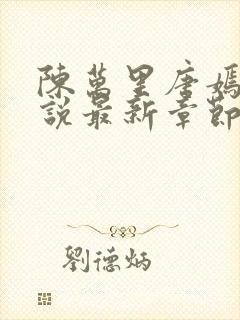 陳萬里唐嫣
說最新章節
劉德炳